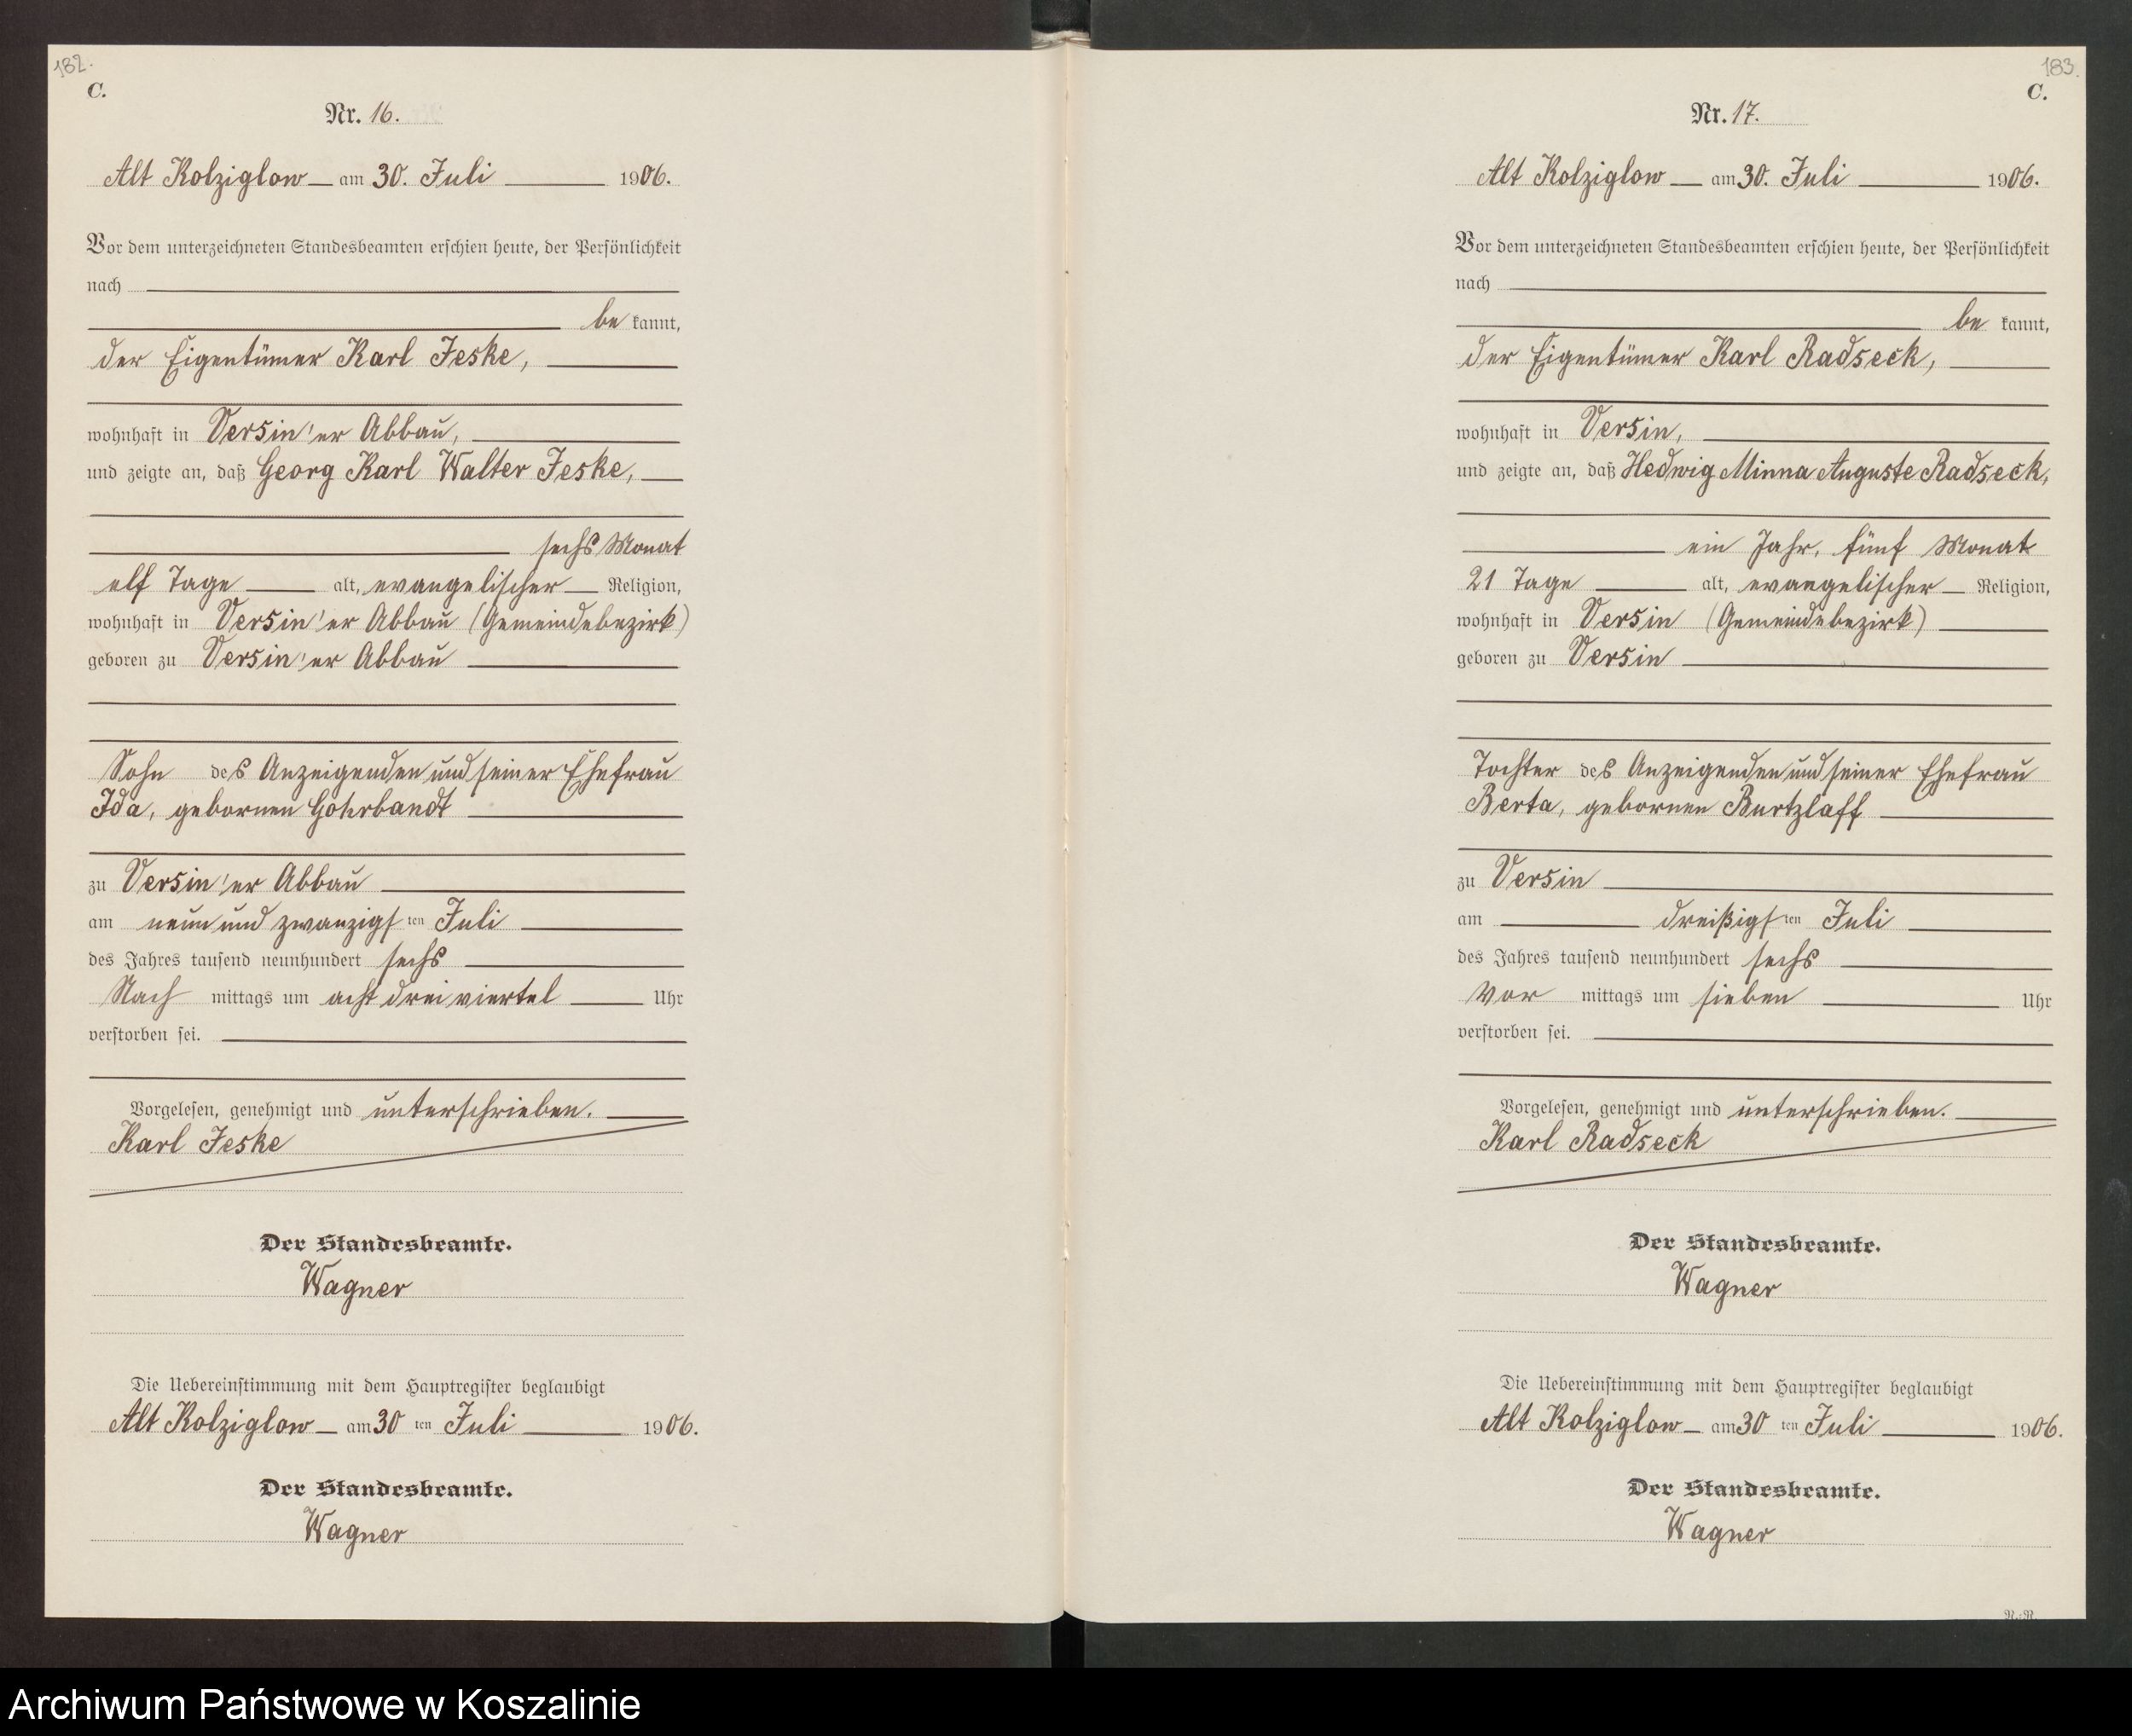 182.
C.
Nr. 16.
Alt Kolziglow am 30. Juli 1906.
Vor dem unterzeichneten Standesbeamten erschien heute, der Persönlichkeit
nach
be kannt,
der Eigentümer Karl Jeske,
wohnhaft in Versin'er Abbau,
und zeigte an, daß Georg Karl Walter Jeske,
sechs Monat
elf Tage alt, evangelischer Religion,
wohnhaft in Versin'er Abbau (Gemeindebezirk)
geboren zu Versin'er Abbau
Sohn des Anzeigenden und seiner Ehefrau
Ida, gebornen Gohrbandt
zu Versin'er Abbau
am neun und zwanzigsten Juli
des Jahres tausend neunhundert sechs
Nach mittags um acht dreiviertel Uhr
verstorben sei.
Vorgelesen, genehmigt und unterschrieben.
Karl Jeske
Der Standesbeamte.
Wagner
Die Uebereinstimmung mit dem Hauptregister beglaubigt
Alt Kolziglow am 30 ten Juli 1906.
Der Standesbeamte.
Wagner
183.
C.
Nr. 17.
Alt Kolziglow am 30. Juli 1906.
Vor dem unterzeichneten Standesbeamten erschien heute, der Persönlichkeit
nach
be kannt,
der Eigentümer Karl Radseck,
wohnhaft in Versin,
und zeigte an, daß Hedwig Minna Auguste Radseck,
ein Jahr, fünf Monat
21 Tage alt, evangelischer Religion,
wohnhaft in Versin (Gemeindebezirk)
geboren zu Versin
Tochter des Anzeigenden und seiner Ehefrau
Berta, gebornen Burtzlaff
zu Versin
am dreißigsten Juli
des Jahres tausend neunhundert sechs
Vor mittags um sieben Uhr
verstorben sei.
Vorgelesen, genehmigt und unterschrieben.
Karl Radseck
Der Standesbeamte.
Wagner
Die Uebereinstimmung mit dem Hauptregister beglaubigt
Alt Kolziglow am 30 ten Juli 1906.
Der Standesbeamte.
Wagner
Archiwum Państwowe w Koszalinie